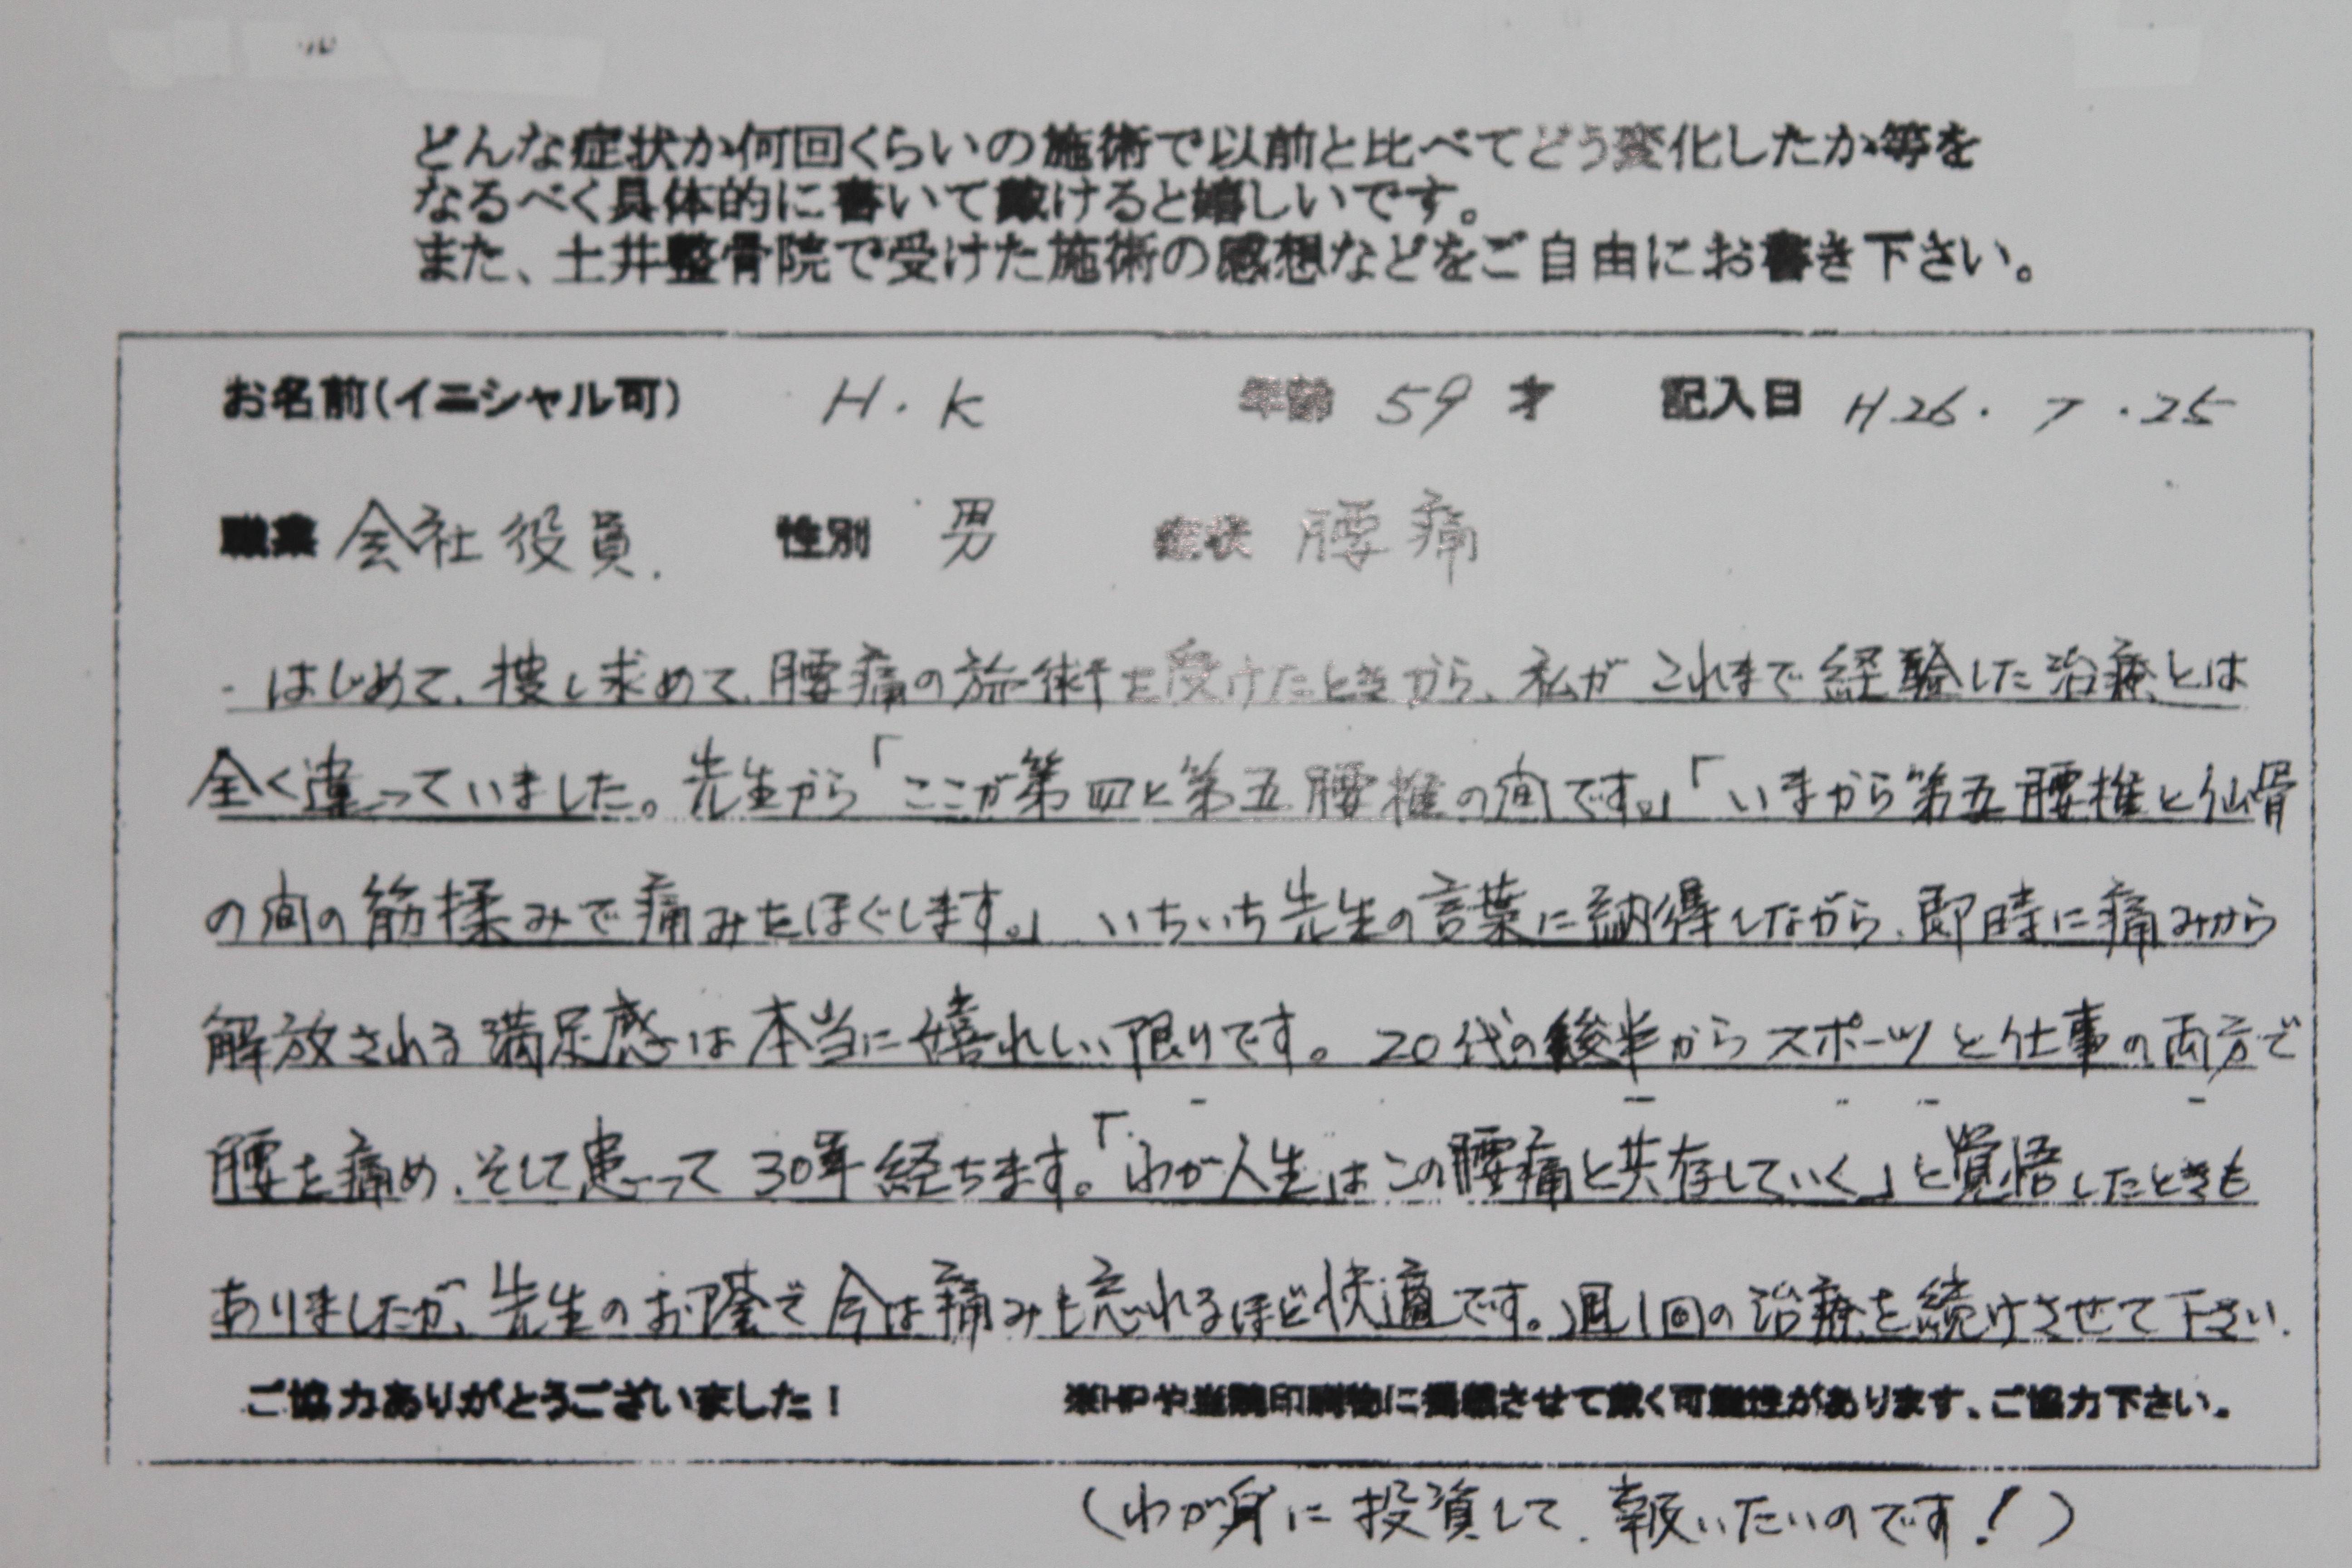 どんな症状か何回くらいの施術で以前と比べてどう変化したか等を
なるべく具体的に書いて戴けると嬉しいです。
また、土井整骨院で受けた施術の感想などをご自由にお書き下さい。
お名前(イニシャル可) H.K 年齢 59 才 記入日 H26.7.25
職業 会社役員. 性別 男 症状 腰痛
はじめて、捜し求めて、腰痛の施術を受けたときから、私がこれまで経験した治療とは
全く違っていました。先生から「ここが第四と第五腰椎の間です。」「いまから第五腰椎と仙骨
の間の筋揉みで痛みをほぐします。」いちいち先生の言葉に納得しながら、即時に痛みから
解放される満足感は本当に嬉れしい限りです。20代の後半からスポーツと仕事の両方で
腰を痛め、そして患って30年経ちます。「わが人生はこの腰痛と共存していく」と覚悟したときも
ありましたが、先生のお陰で今は痛みも忘れるほど快適です。週1回の治療を続けさせて下さい.
ご協力ありがとうございました! ※HPや当院印刷物に掲載させて戴く可能性があります、ご協力下さい。
(わが身に投資して、報いたいのです!)